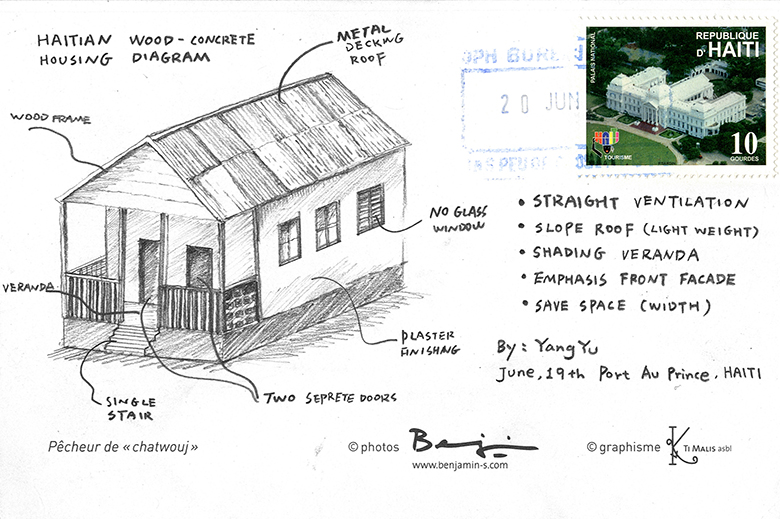 HAITIAN WOOD-CONCRETE
HOUSING DIAGRAM
METAL
DECKING
ROOF
WOOD FRAME
NO GLASS
WINDOW
VERANDA
PLASTER
FINISHING
SINGLE
STAIR
TWO SEPRETE DOORS
20 JUN
PALAIS NATIONAL
REPUBLIQUE
D'HAITI
HAITI
TOURISME
10
GOURDES
• STRAIGHT VENTILATION
• SLOPE ROOF (LIGHT WEIGHT)
• SHADING VERANDA
• EMPHASIS FRONT FACADE
• SAVE SPACE (WIDTH)
By: YangYu
June, 19th Port Au Prince, HAITI
Pêcheur de « chatwouj »
© photos
Benj
www.benjamin-s.com
© graphisme
K
TI MALIS asbl